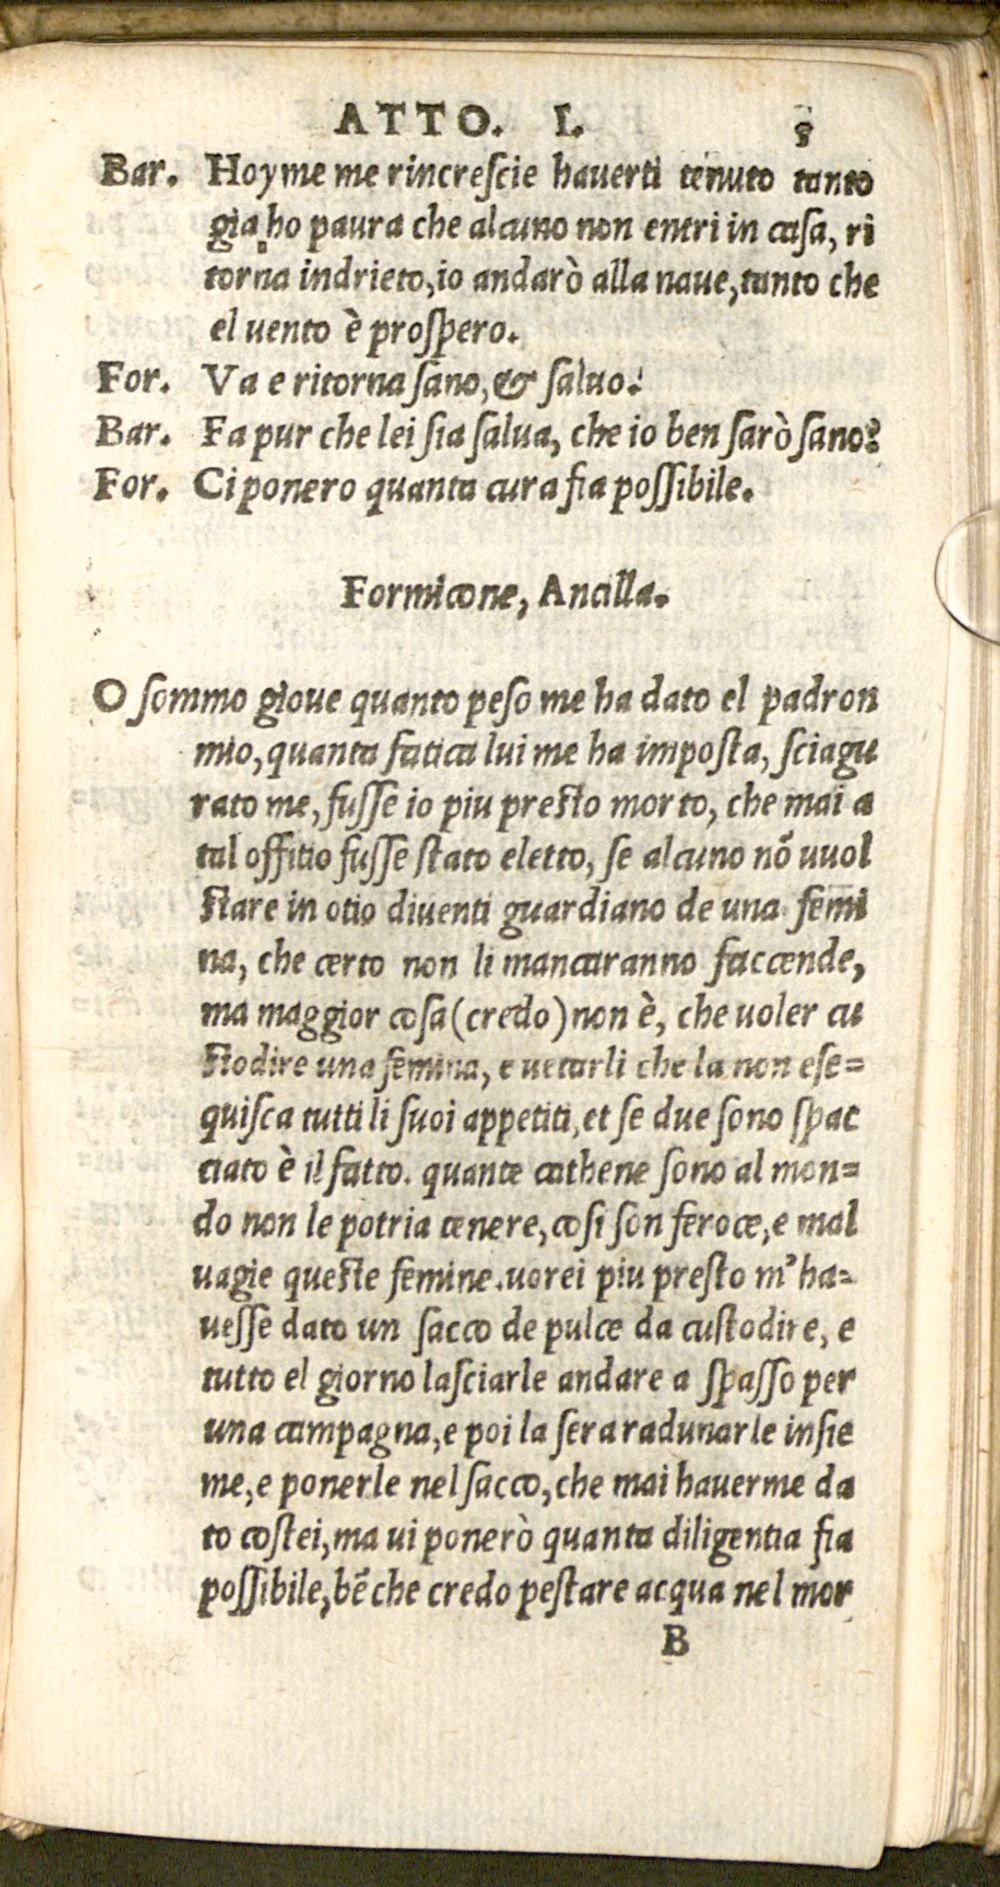 ATTO. I. 8
Bar. Hoyme me rincreſcie hauerti tenuto tanto
gia ho paura che alcuno non entri in caſa, ri
torna indrieto, io andarò alla naue, tanto che
el uento è proſpero.
For. Va e ritorna ſano, & ſaluo.
Bar. Fa pur che lei ſia ſalua, che io ben ſarò ſano?
For. Ci ponero quanta cura fia poſſibile.
Formicone, Ancilla.
O ſommo gioue quanto peſo me ha dato el padron
mio, quanta fatica lui me ha impoſta, ſciagu
rato me, fuſſe io piu preſto morto, che mai a
tal offitio fuſſe ſtato eletto, ſe alcuno nõ uuol
ſtare in otio diuenti guardiano de una femi
na, che certo non li mancaranno faccende,
ma maggior coſa (credo) non è, che uoler cu
ſtodire una femina, e uetarli che la non eſe=
quiſca tutti li ſuoi appetiti, et ſe due ſono ſpac
ciato è il fatto. quante cathene ſono al mon=
do non le potria tenere, coſi ſon feroce, e mal
uagie queſte femine. uorei piu preſto m'ha=
ueſſe dato un ſacco de pulce da cuſtodire, e
tutto el giorno laſciarle andare a ſpaſſo per
una campagna, e poi la ſera radunarle inſie
me, e ponerle nel ſacco, che mai hauerme da
to coſtei, ma ui ponerò quanta diligentia fia
poſſibile, bẽ che credo peſtare acqua nel mor
B